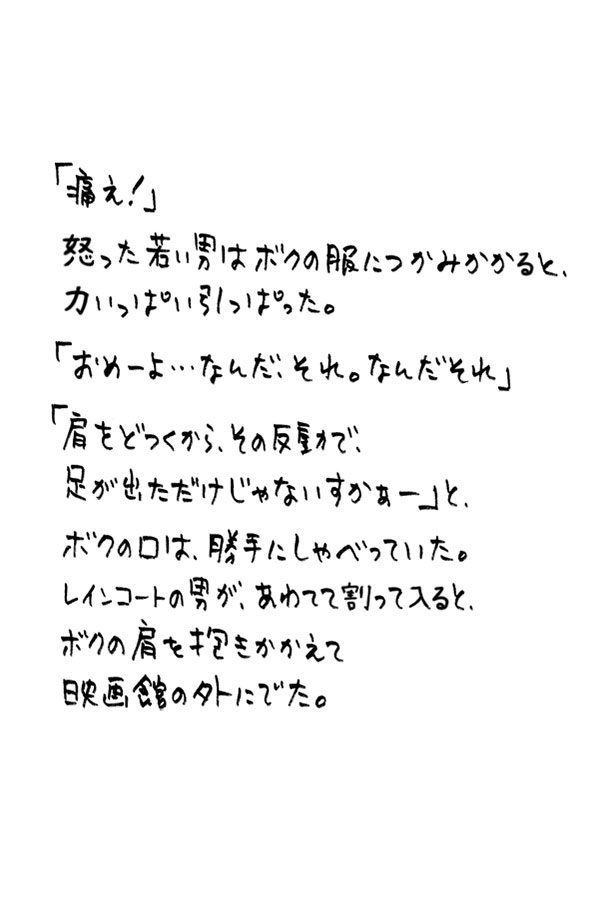 「痛え！」
怒った若い男はボクの服につかみかかると、
力いっぱい引っぱった。
「おめーよ…なんだ、それ。なんだそれ」
「肩をどつくから、その反動で、
足が出ただけじゃないすかぁー」と、
ボクの口は、勝手にしゃべっていた。
レインコートの男が、あわてて割って入ると、
ボクの肩を抱きかかえて
映画館の外にでた。